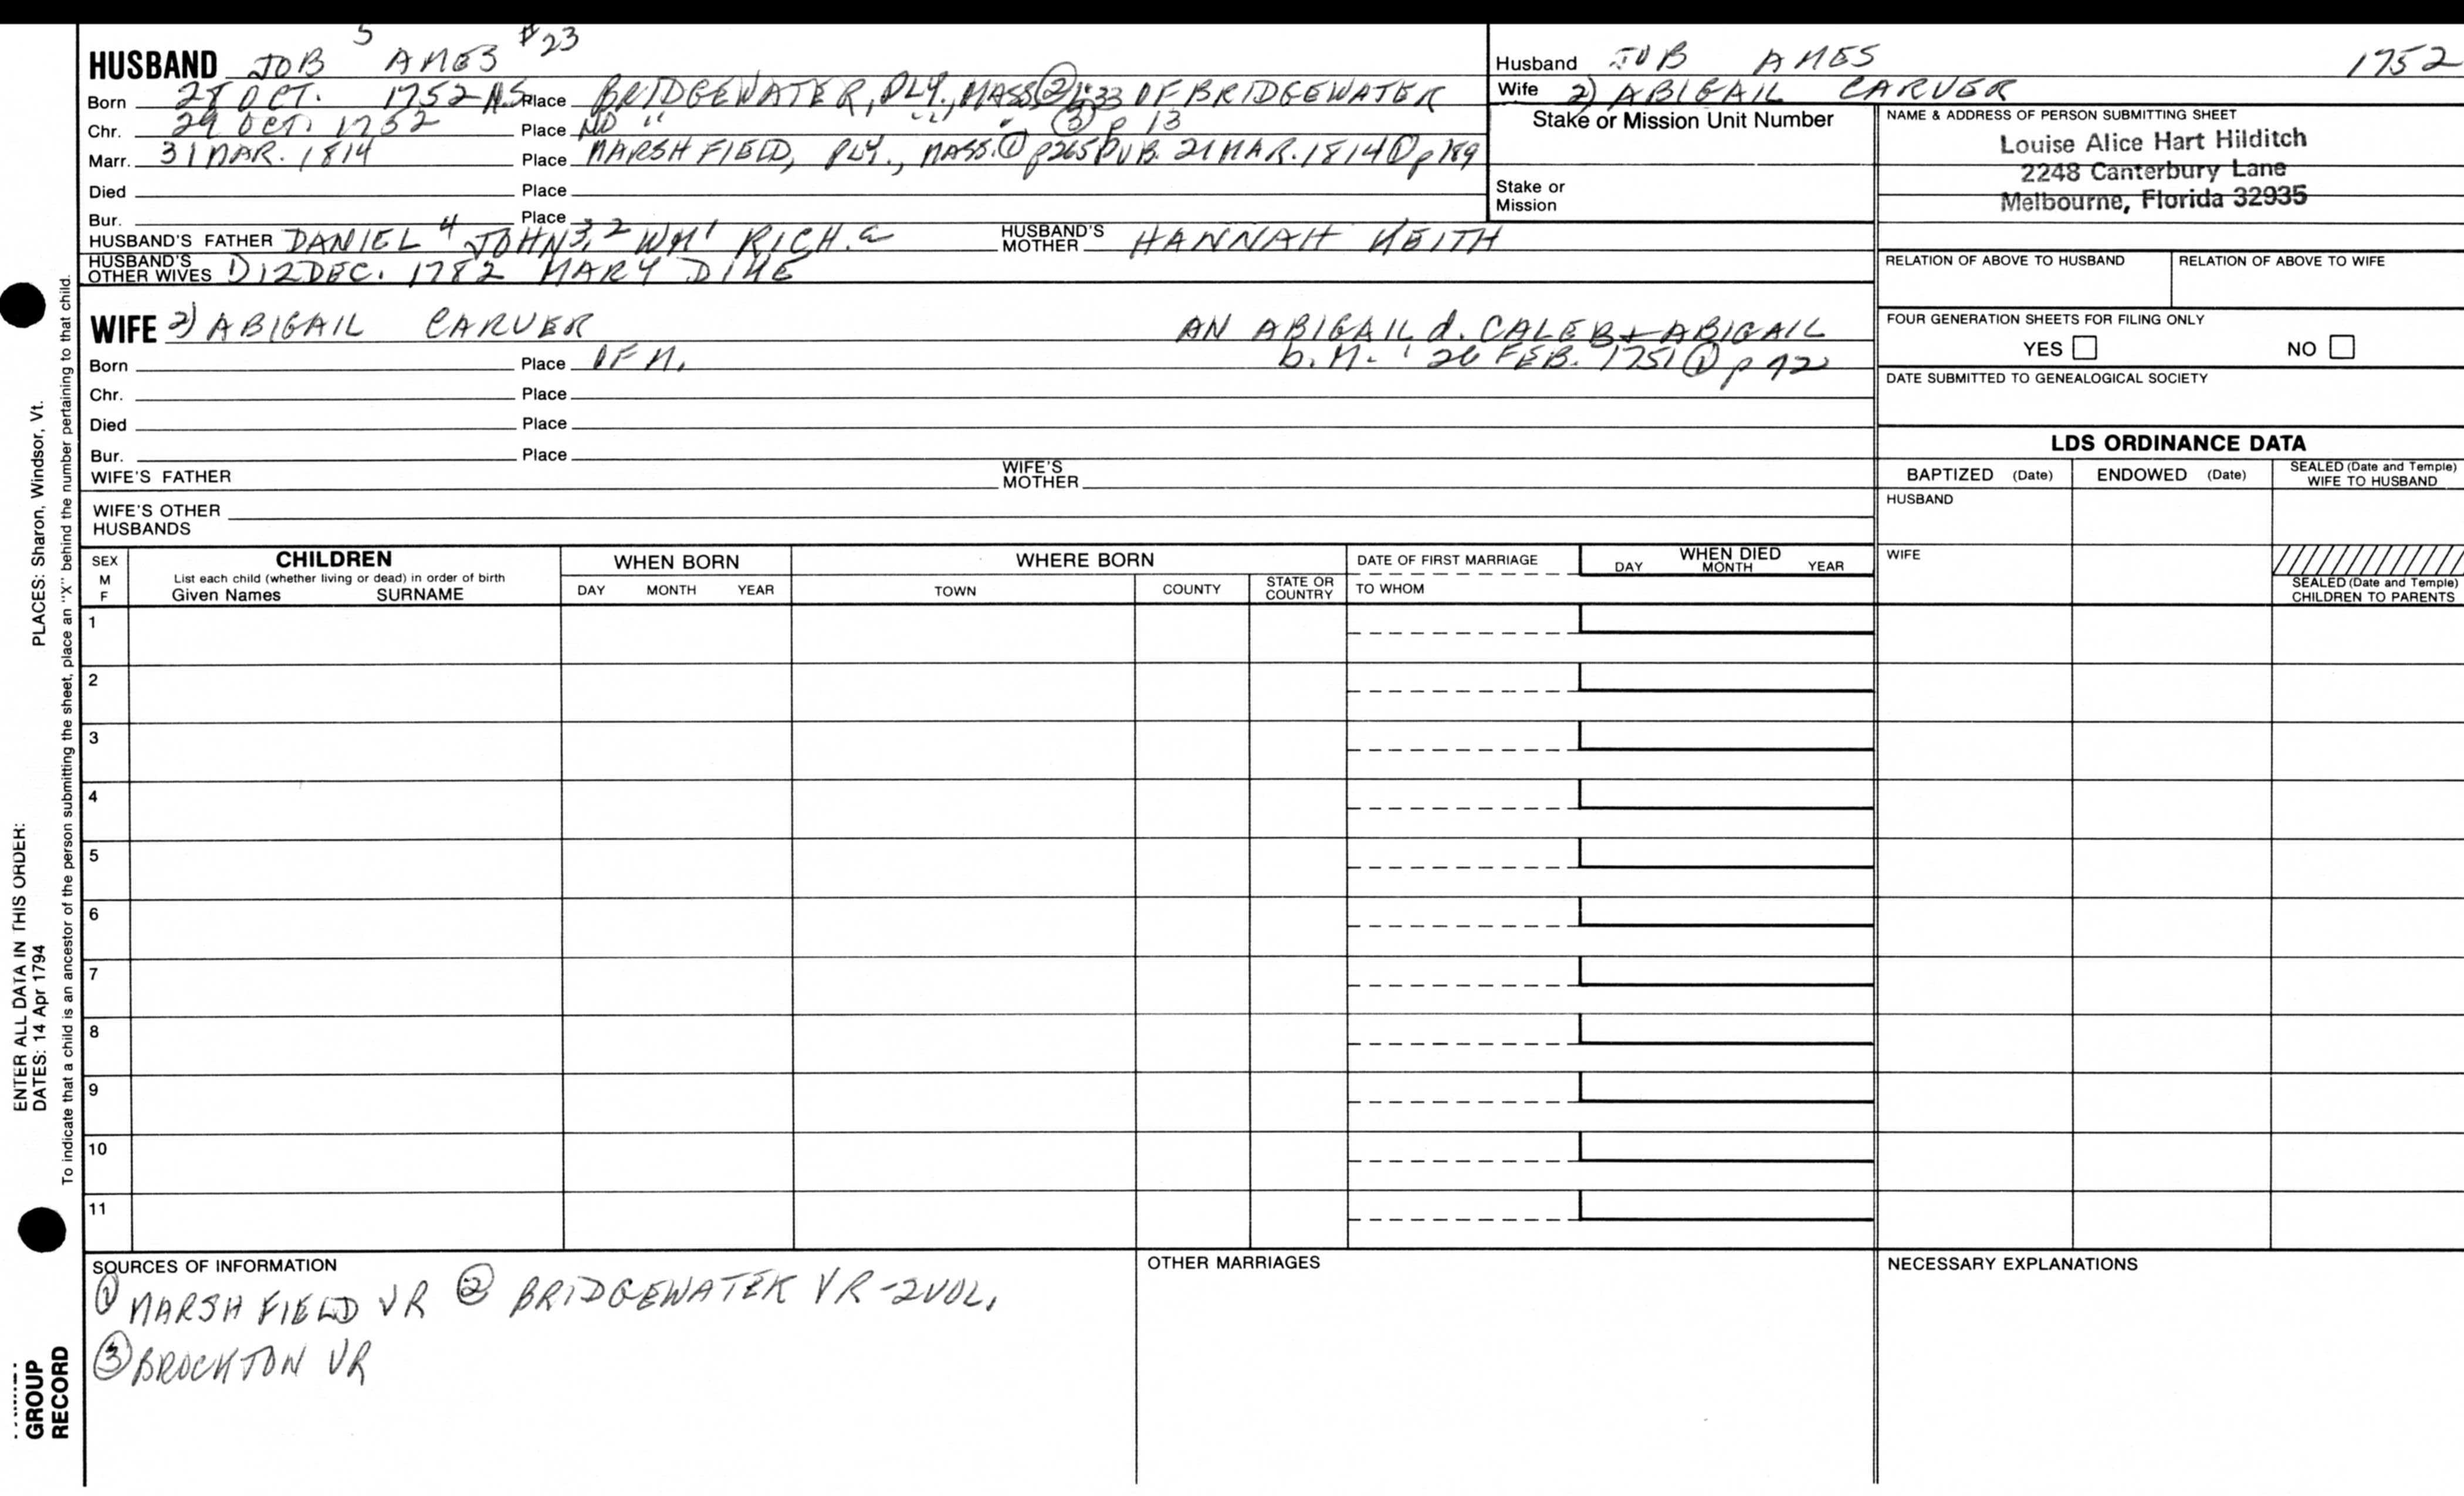 HUSBAND JOB 5 AMES #23
Born 28 OCT. 1752 N.S. Place BRIDGEWATER, PLY., MASS ② 1:33 OF BRIDGEWATER
Chr. 29 OCT. 1752 Place NO " " " ③ p 13
Marr. 31 MAR. 1814 Place MARSHFIELD, PLY., MASS. ① p265 PUB. 21 MAR. 1814 ① p 189
Died Place
Bur. Place
HUSBAND'S FATHER DANIEL 4 JOHN 3,2 WM 1 RICH. a HUSBAND'S MOTHER HANNAH KEITH
HUSBAND'S OTHER WIVES 1) 12 DEC. 1782 MARY DIKE
Husband JOB AMES 1752
Wife 2) ABIGAIL CARVER
Stake or Mission Unit Number
Stake or Mission
NAME & ADDRESS OF PERSON SUBMITTING SHEET
Louise Alice Hart Hilditch
2248 Canterbury Lane
Melbourne, Florida 32935
RELATION OF ABOVE TO HUSBAND RELATION OF ABOVE TO WIFE
FOUR GENERATION SHEETS FOR FILING ONLY
YES NO
DATE SUBMITTED TO GENEALOGICAL SOCIETY
WIFE 2) ABIGAIL CARVER AN ABIGAIL d. CALEB + ABIGAIL
Born Place OF M. b. M. 26 FEB. 1751 ① p 92
Chr. Place
Died Place
Bur. Place
WIFE'S FATHER WIFE'S MOTHER
WIFE'S OTHER HUSBANDS
LDS ORDINANCE DATA
BAPTIZED (Date) ENDOWED (Date) SEALED (Date and Temple) WIFE TO HUSBAND
HUSBAND
WIFE
SEALED (Date and Temple) CHILDREN TO PARENTS
SEX M F
CHILDREN
List each child (whether living or dead) in order of birth
Given Names SURNAME
WHEN BORN
DAY MONTH YEAR
WHERE BORN
TOWN COUNTY STATE OR COUNTRY
DATE OF FIRST MARRIAGE
TO WHOM
WHEN DIED
DAY MONTH YEAR
1
2
3
4
5
6
7
8
9
10
11
SOURCES OF INFORMATION
① MARSHFIELD VR ② BRIDGEWATER VR - 2 VOL.
③ BROCKTON VR
OTHER MARRIAGES
NECESSARY EXPLANATIONS
ENTER ALL DATA IN THIS ORDER:
DATES: 14 Apr 1794 PLACES: Sharon, Windsor, Vt.
To indicate that a child is an ancestor of the person submitting the sheet, place an "X" behind the number pertaining to that child.
GROUP
RECORD